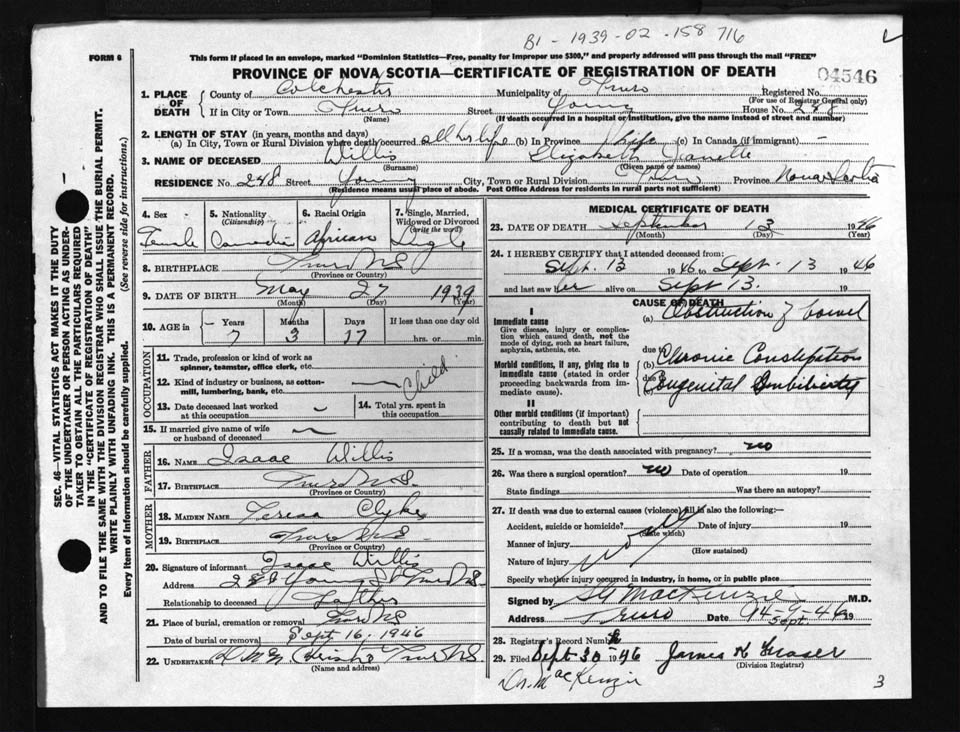 B1 - 1939 - 02 - 158 716
FORM 6
This form if placed in an envelope, marked "Dominion Statistics—Free, penalty for improper use $300," and properly addressed will pass through the mail "FREE"
PROVINCE OF NOVA SCOTIA—CERTIFICATE OF REGISTRATION OF DEATH
04546
1. PLACE OF DEATH
County of Colchester Municipality of Truro Registered No.
(For use of Registrar General only)
If in City or Town Truro Street Young House No. 248
(Name) (If death occurred in a hospital or institution, give the name instead of street and number)
2. LENGTH OF STAY (in years, months and days)
(a) In City, Town or Rural Division where death occurred all her life (b) In Province life (c) In Canada (if immigrant) —
3. NAME OF DECEASED Willis Elizabeth
(Surname) (Given name or names)
RESIDENCE No. 248 Street Young City, Town or Rural Division Truro Province Nova Scotia
(Residence means usual place of abode. Post Office Address for residents in rural parts not sufficient)
4. Sex
Female
5. Nationality (Citizenship)
Canadian
6. Racial Origin
African
7. Single, Married, Widowed or Divorced (write the word)
Single
8. BIRTHPLACE Truro NS
(Province or Country)
9. DATE OF BIRTH May 27 1939
(Month) (Day) (Year)
10. AGE in
Years 7
Months 3
Days 17
If less than one day old
hrs. or min.
OCCUPATION
11. Trade, profession or kind of work as spinner, teamster, office clerk, etc.
12. Kind of industry or business, as cotton-mill, lumbering, bank, etc.
Child
13. Date deceased last worked at this occupation
14. Total yrs. spent in this occupation
15. If married give name of wife or husband of deceased
FATHER
16. NAME Isaac Willis
17. BIRTHPLACE Truro N.S.
(Province or Country)
MOTHER
18. MAIDEN NAME Teresa Clyke
19. BIRTHPLACE Truro N.S.
(Province or Country)
20. Signature of informant Isaac Willis
Address 248 Young St Truro N.S.
Relationship to deceased Father
21. Place of burial, cremation or removal Truro NS
Date of burial or removal Sept 16, 1946
22. UNDERTAKER Truro N.S.
(Name and address)
MEDICAL CERTIFICATE OF DEATH
23. DATE OF DEATH September 13 1946
(Month) (Day) (Year)
24. I HEREBY CERTIFY that I attended deceased from:
Sept. 13 1946 to Sept. 13 1946
and last saw her alive on Sept 13. 19
CAUSE OF DEATH
I
Immediate cause
Give disease, injury or complication which caused death, not the mode of dying, such as heart failure, asphyxia, asthenia, etc.
(a) Obstruction of bowel
due to
Morbid conditions, if any, giving rise to immediate cause (stated in order proceeding backwards from immediate cause).
(b) Chronic Constipation
due to
Congenital
II
Other morbid conditions (if important) contributing to death but not causally related to immediate cause.
25. If a woman, was the death associated with pregnancy? no
26. Was there a surgical operation? no Date of operation 19
State findings Was there an autopsy?
27. If death was due to external causes (violence) fill in also the following:—
Accident, suicide or homicide? Date of injury 19
(State which)
Manner of injury
(How sustained)
Nature of injury
Specify whether injury occurred in industry, in home, or in public place
Signed by MacKenzie M.D.
Address Truro Date 14-9-46 19
Sept.
28. Registrar's Record Number
29. Filed Sept 30 1946 James K Fraser
(Division Registrar)
Dr. MacKenzie
3
SEC. 46—VITAL STATISTICS ACT MAKES IT THE DUTY
OF THE UNDERTAKER OR PERSON ACTING AS UNDER-
TAKER TO OBTAIN ALL THE PARTICULARS REQUIRED
IN THE "CERTIFICATE OF REGISTRATION OF DEATH"
AND TO FILE THE SAME WITH THE DIVISION REGISTRAR WHO SHALL ISSUE THE BURIAL PERMIT.
WRITE PLAINLY WITH UNFADING INK. THIS IS A PERMANENT RECORD.
Every item of Information should be carefully supplied. (See reverse side for instructions.)